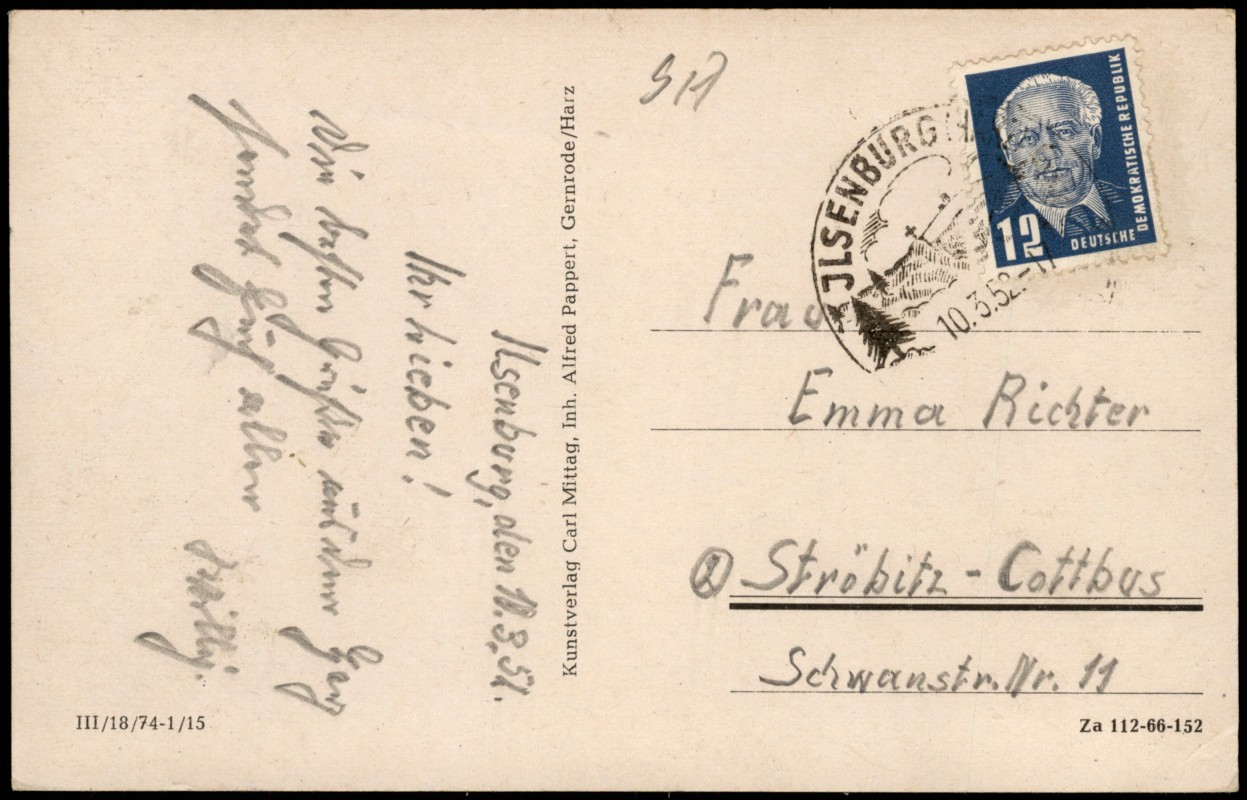 Ilsenburg, den 10.3.52.
Ihr Lieben!
Die besten Grüße aus dem Harz
sendet Euch allen
Willy.
Kunstverlag Carl Mittag, Inh. Alfred Pappert, Gernrode/Harz
III/18/74-1/15
JLSENBURG (HARZ)
10.3.52.-17
12
DEUTSCHE DEMOKRATISCHE REPUBLIK
Frau
Emma Richter
② Ströbitz - Cottbus
Schwanstr. Nr. 11
Za 112-66-152